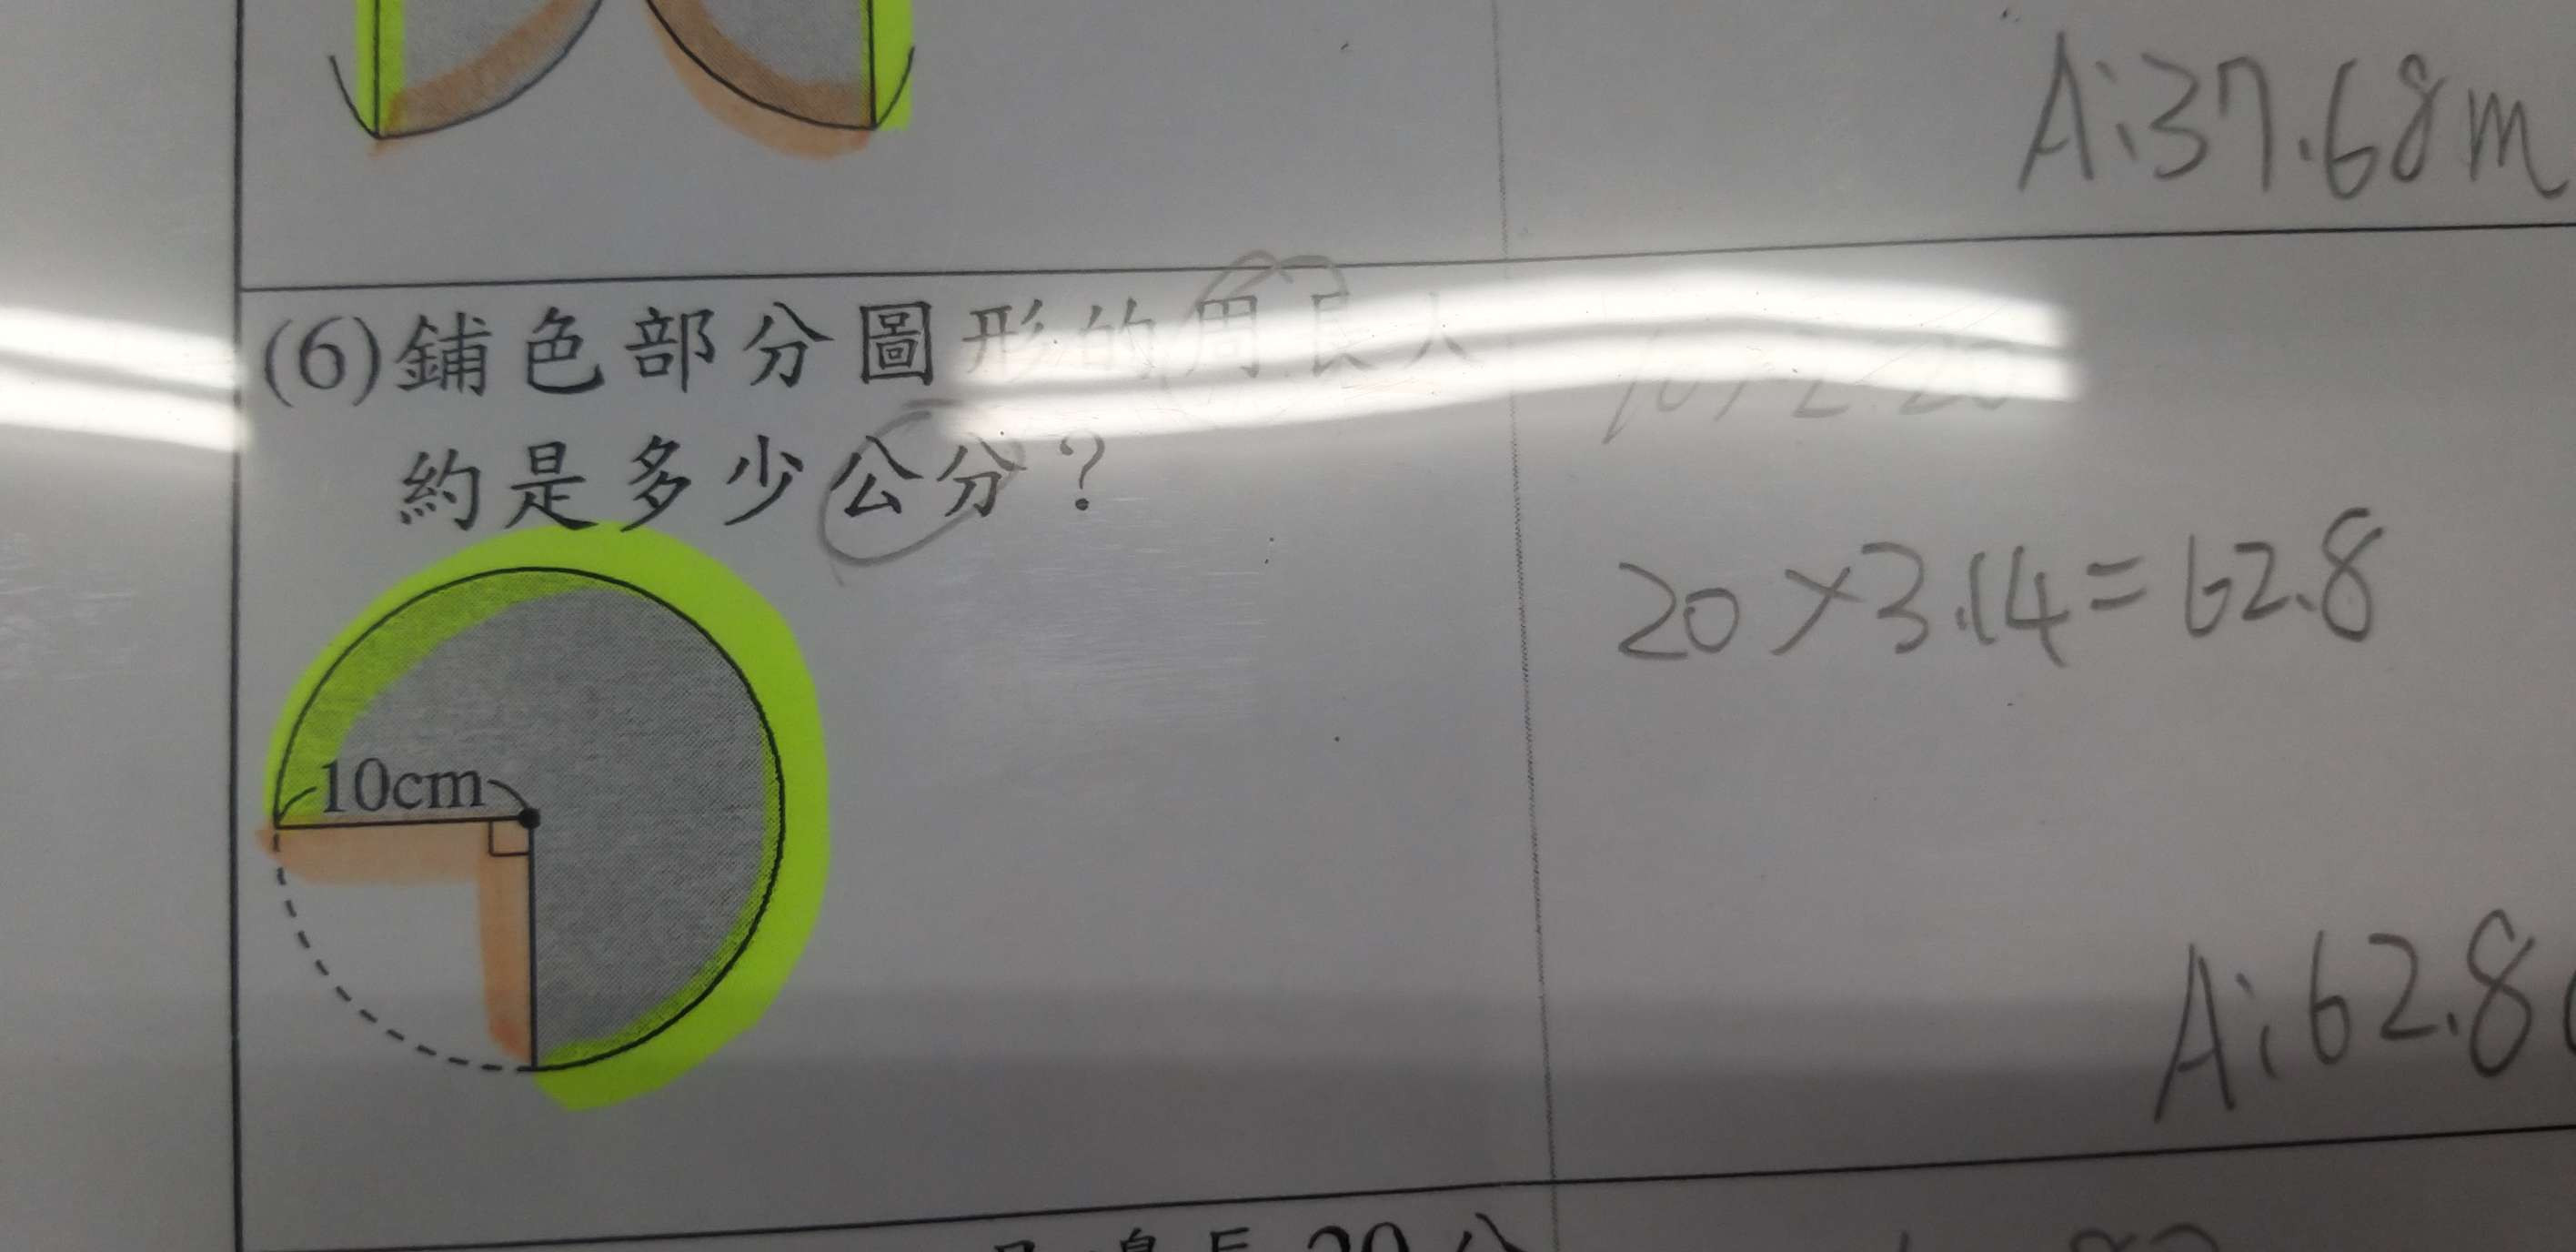 A:37.68m
(6)鋪色部分圖形的周長大
約是多少公分?
10cm
20×3.14=62.8
A:62.8